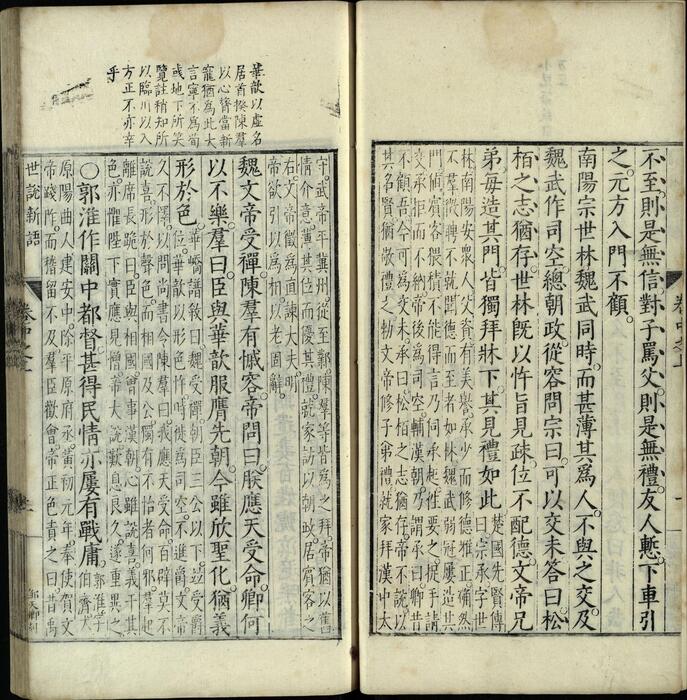 不至則是無信對子罵父則是無禮友人慙下車引
之元方入門不顧
南陽宗世林魏武同時而甚薄其爲人不與之交及
魏武作司空總朝政從容問宗曰可以交未答曰松
栢之志猶存世林旣以忤旨見疎位不配德文帝兄
弟每造其門皆獨拜牀下其見禮如此
楚國先賢傳
曰宗承字世
林南陽安衆人父資有美譽承少而修德雅正確然
不羣徵聘不就聞德而至者如林魏武弱冠屢造其
門値賓客猥積不能得言乃伺承起往要之捉手請
交承拒而不納帝後爲司空輔漢朝乃謂承曰卿昔
不顧吾今可爲交未承曰松栢之志猶存帝不説以
其名賢猶敬禮之勑文帝修子弟禮就家拜漢中太
華歆以虛名
居首揆陳羣
以心膂當新
寵猶爲此大
言寧不爲荀
或地下所笑
覽註稍知所
以臨川以入
方正不亦幸
乎
守武帝平冀州從至鄴陳羣等皆爲之拜帝猶以舊
情介意薄其位而優其禮就家訪以朝政居賓客之
右文帝徵爲直諫大夫明
帝欲引以爲相以老固辭
魏文帝受禪陳羣有慽容帝問曰朕應天受命卿何
以不樂羣曰臣與華歆服膺先朝今雖欣聖化猶義
形於色
華嶠譜敘曰魏受禪朝臣三公以下竝受爵
位華歆以形色忤時徙爲司空不進爵文帝
久不懌以問尚書令陳羣曰我應天受命百辟莫不
説喜形於聲色而相國及公獨有不怡者何邪羣起
離席長跪曰臣與相國曾事漢朝心雖説喜義干其
色亦懼陛下實應見憎帝大説歎息良久遂重異之
○郭淮作關中都督甚得民情亦屢有戰庸
郭淮字
伯濟太
原陽曲人建安中除平原府丞黃初元年奉使賀文
帝踐阼而稽留不及羣臣歡會帝正色責之曰昔禹
世説新語
卷中之上